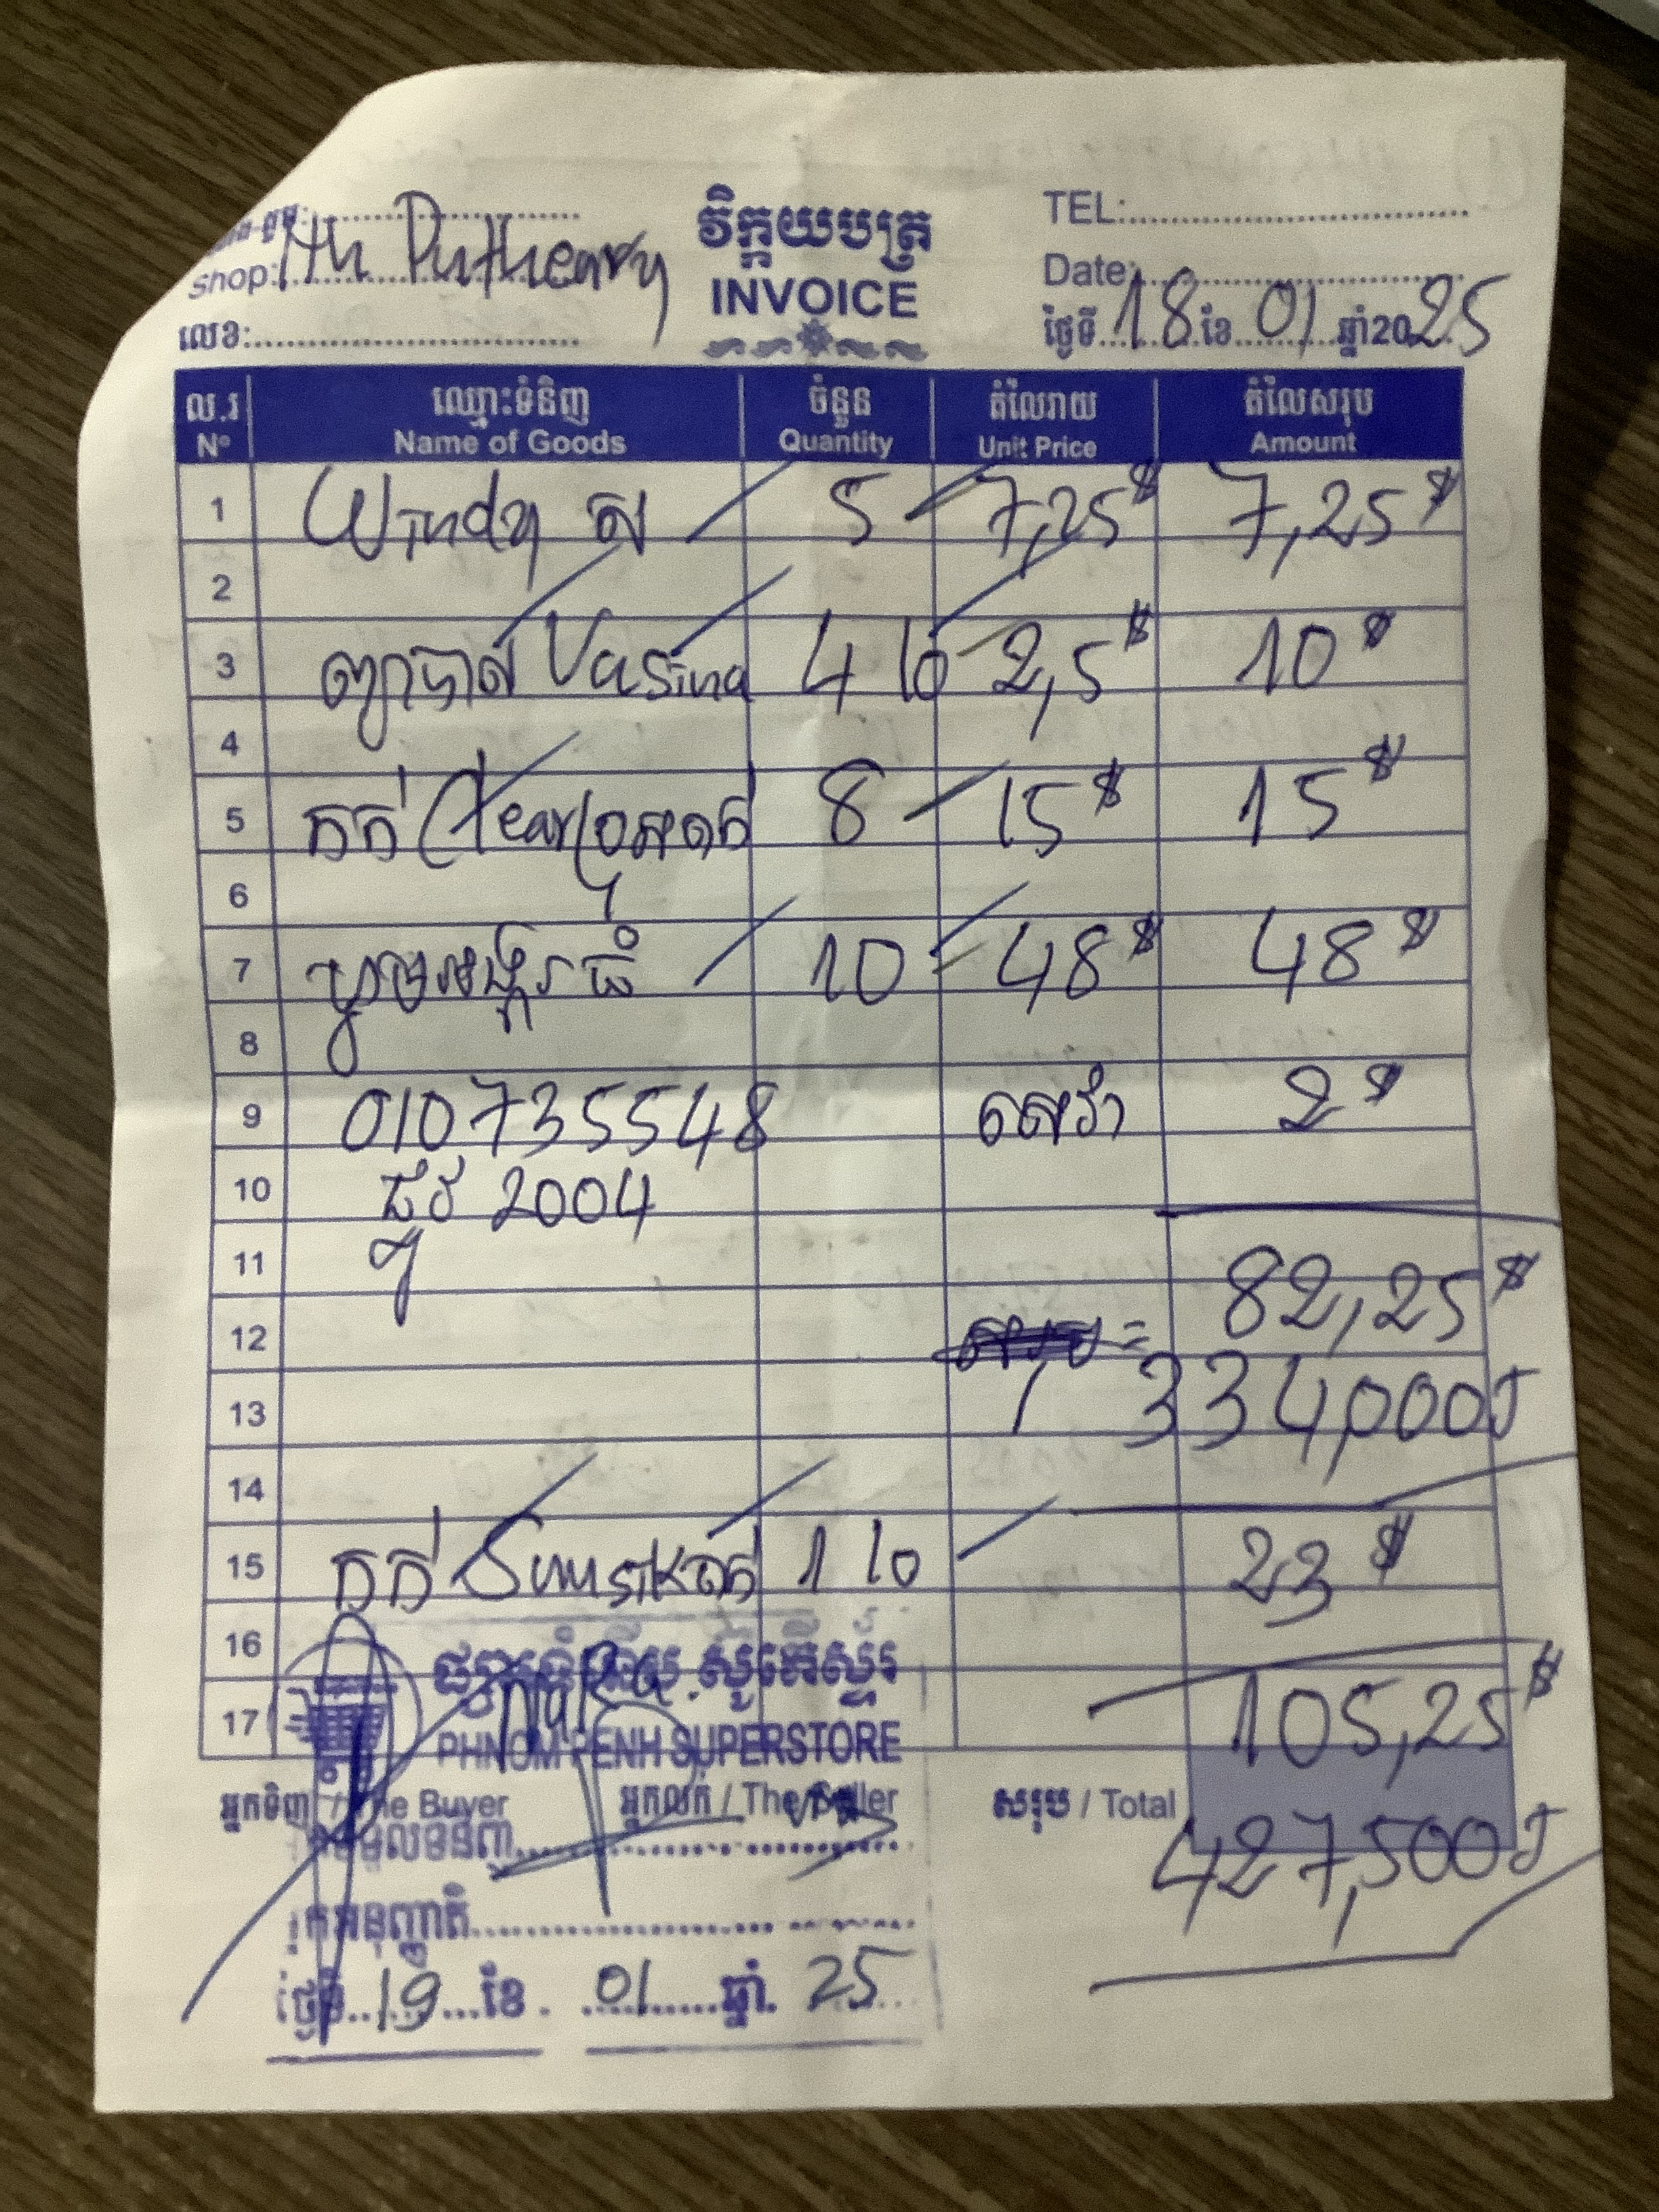 shop: Ith Putheary
វិក្កយបត្រ
INVOICE
TEL:
Date:
លេខ:
ថ្ងៃទី 18 ខែ 01 ឆ្នាំ 2025
ល.រ ឈ្មោះទំនិញ ចំនួន តំលៃរាយ តំលៃសរុប
Nº Name of Goods Quantity Unit Price Amount
1 Windy 5 7,25$ 7,25$
2
3 Vasina 4 10 2,5$ 10$
4
5 កក់ Clear 8 15$ 15$
6
7 10 48$ 48$
8
9 010735548 2$
10 ជួរ 2004
11 82,25$
12 =
13 334,000៛
14
15 កក់ Sunsilk 1 10 23$
16
17 105,25$
PHNOM PENH SUPERSTORE
អ្នកទិញ / The Buyer អ្នកលក់ / The Seller សរុប / Total 427,500៛
ថ្ងៃទី 19 ខែ 01 ឆ្នាំ 25